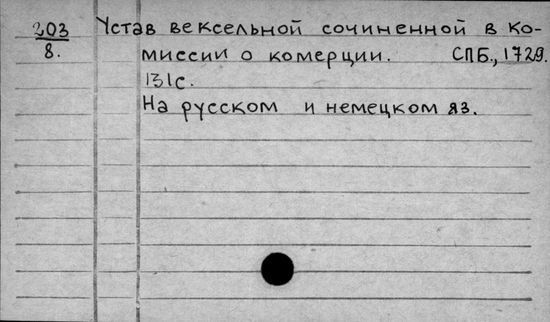 203 Устав вексельной сочиненной в Ко-
8. миссии о комерции. СПБ., 1729.
131с.
На русском и немецком яз.